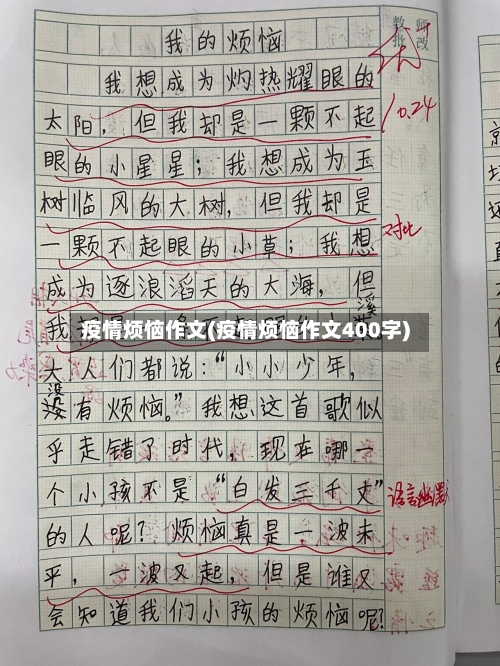 教师
批改
我的烦恼
优
我想成为灼热耀眼的
10.24
太阳，但我却是一颗不起
眼的小星星；我想成为玉
树临风的大树，但我却是
一颗不起眼的小草；我想
对比
成为逐浪滔天的大海，但
溪
我
疫情烦恼作文(疫情烦恼作文400字)
大人们都说：“小小少年，
没有烦恼。”我想这首歌似
乎走错了时代，现在哪一
个小孩不是“白发三千丈”
语言幽默
的人呢？烦恼真是一波未
平，一波又起，但是谁又
会知道我们小孩的烦恼呢？